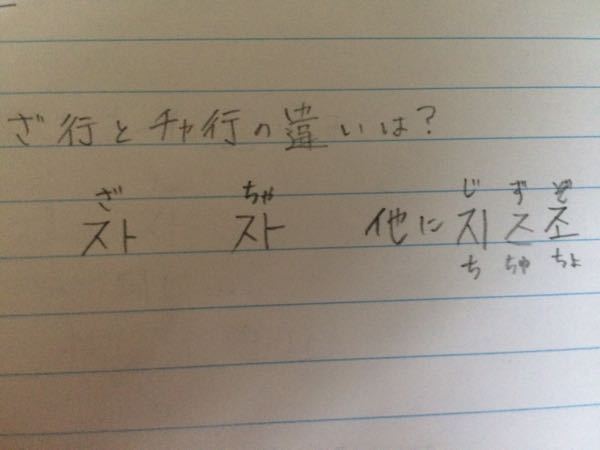 ざ行とチャ行の違いは?
ざ ちゃ じ ず ぞ
자 자 他に지 즈 조
ち ちゅ ちょ